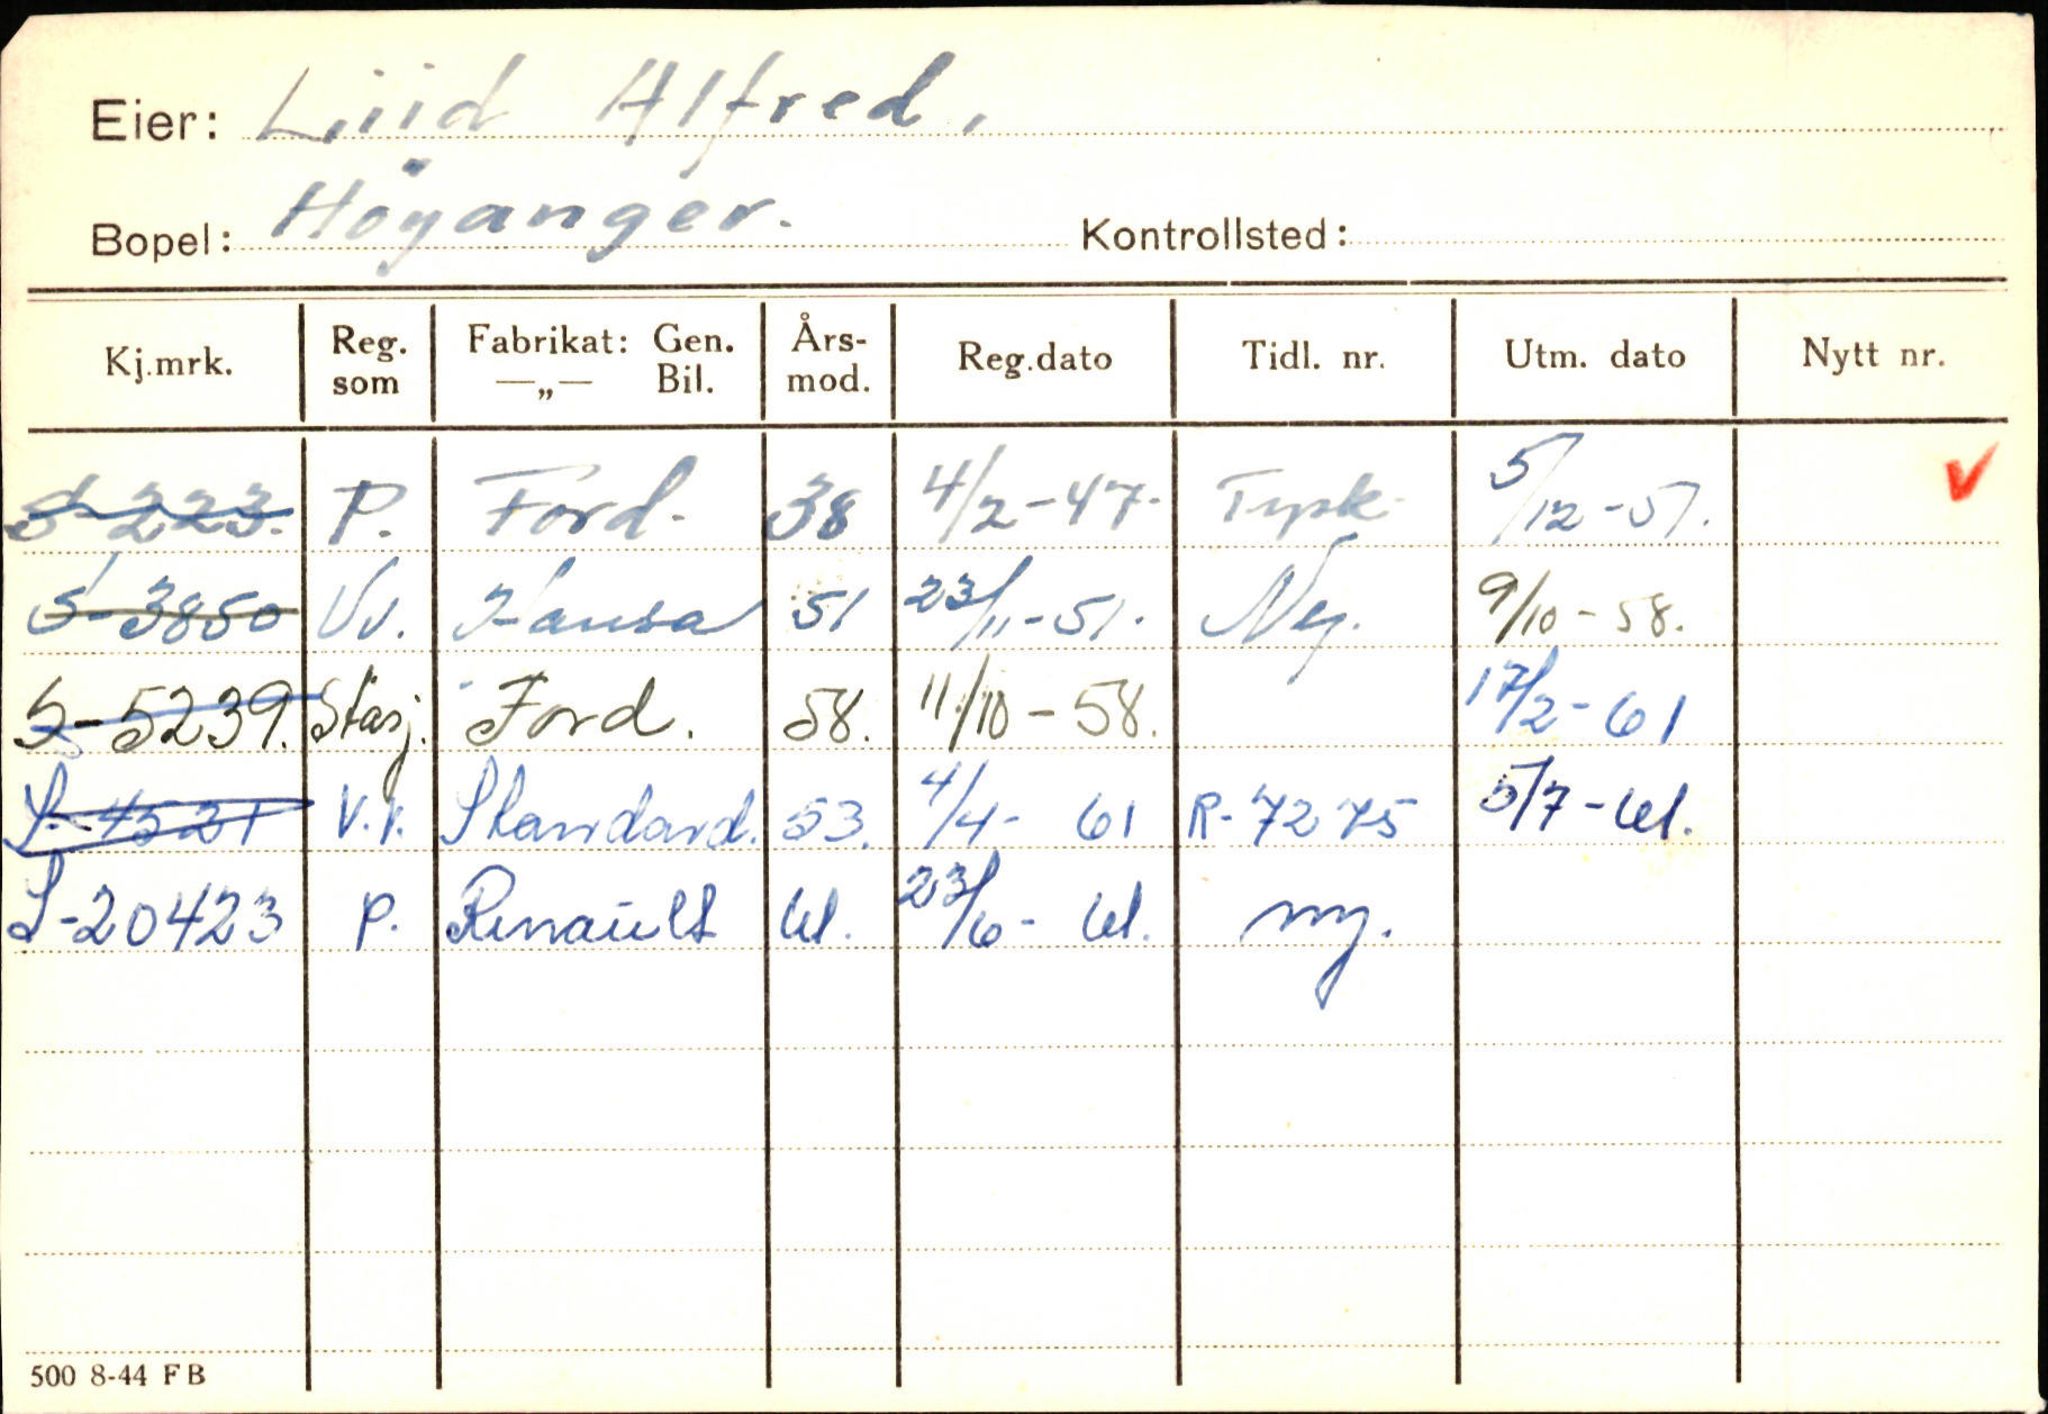 Eier: Liid Alfred.
Bopel: Höyanger. Kontrollsted:
Kj.mrk. Reg. som Fabrikat: Gen. —„— Bil. Års-mod. Reg.dato Tidl. nr. Utm. dato Nytt nr.
S-223. P. Ford. 38 4/2-47. Tysk. 5/12-51. ✓
S-3850 Vv. Hansa 51 23/11-51. Ny. 9/10-58.
S-5239. Stasj. Ford. 58. 11/10-58. 17/2-61
S-4521 V.v. Standard. 53. 4/4-61 R-7275 5/7-61.
S-20423 P. Renault 61. 23/6-61. ny.
500 8-44 FB